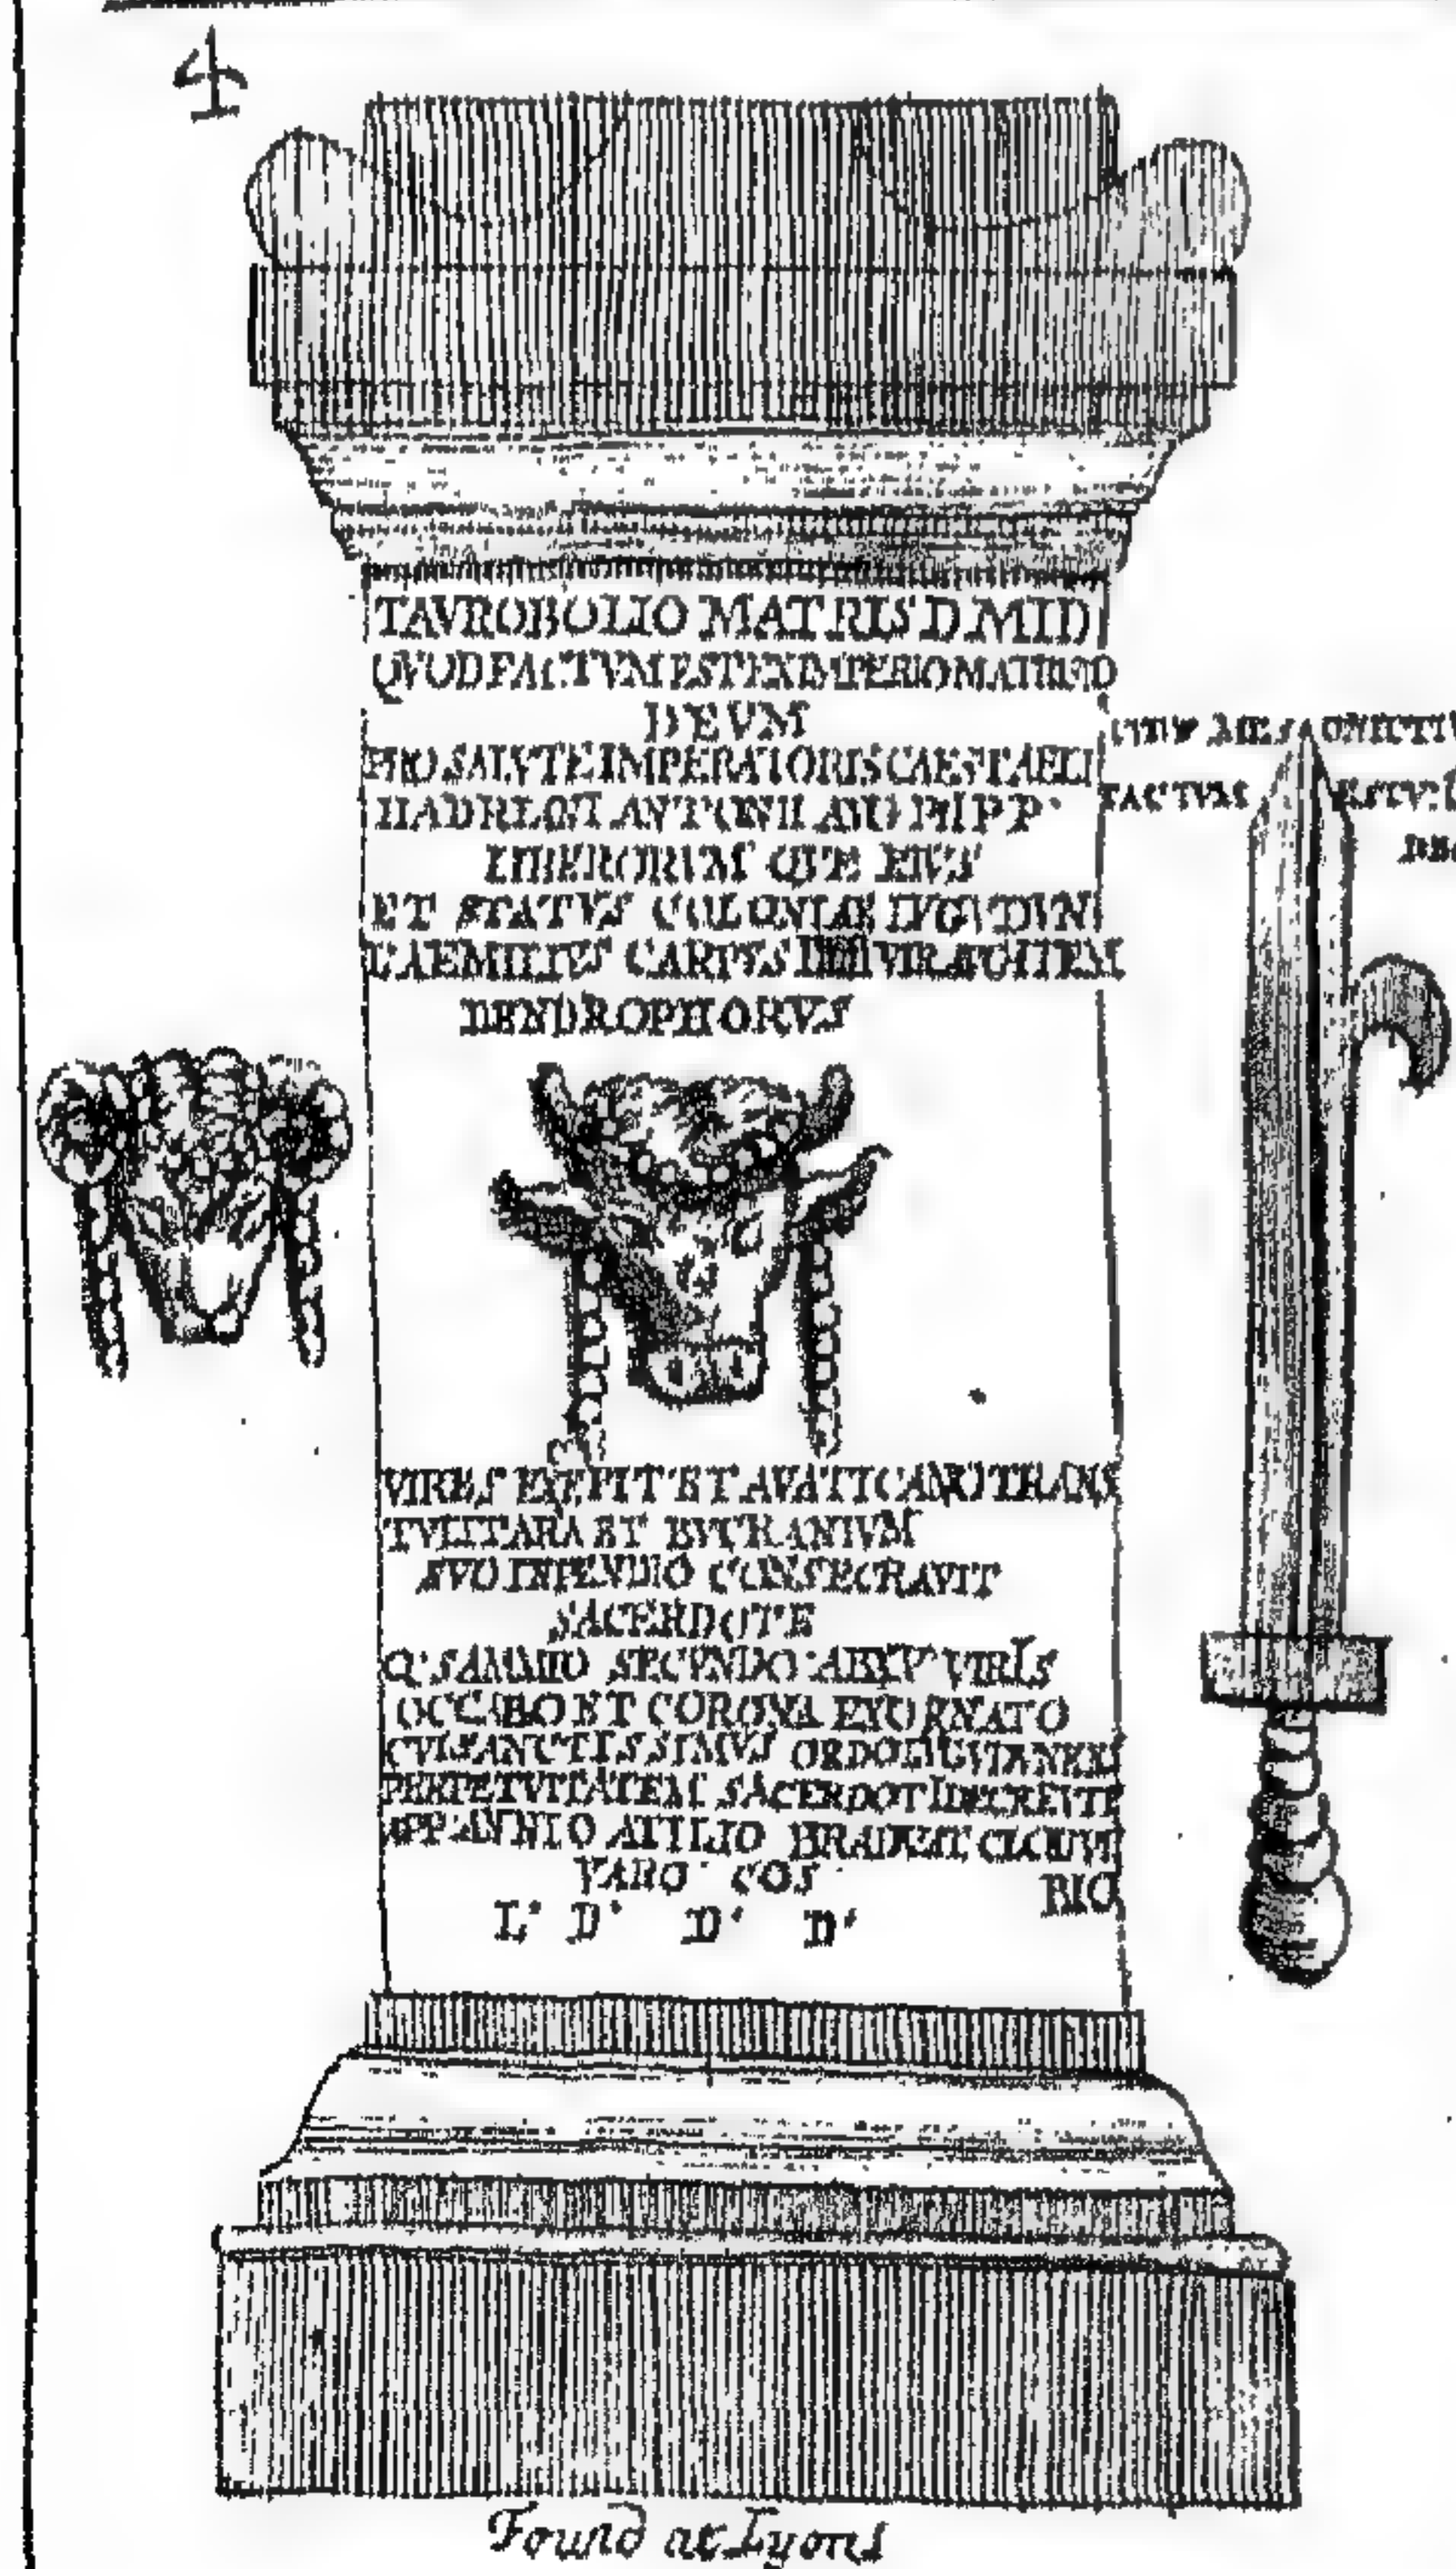 4
TAVROBOLIO MATRIS D MID
QVOD FACTVM EST EX IMPERIO MATRIS D
DEVM
PRO SALVTE IMPERATORIS CAES T AELI
HADRI ANTONI PII P P
LIBERORVM QVE EIVS
ET STATVS COLONIAE LVGVDVNI
L AEMILIVS CARPVS IIIIII VIR AVG ITEM
DENDROPHORVS
FACTVM
VIRES EXCEPIT ET A VATICANO TRANS
TVLIT ARA ET BVCRANIVM
SVO INPENDIO CONSECRAVIT
SACERDOTE
Q SAMMIO SECVNDO AB XV VIRIS
OCCABO ET CORONA EXORNATO
CVI SANCTISSIMVS ORDO
PERPETVITATEM SACERDOTI DECREVIT
APP ANNIO ATILIO BRADVA T CLOD VI
BIO
VARO COS
L D D D
Found at Lyons